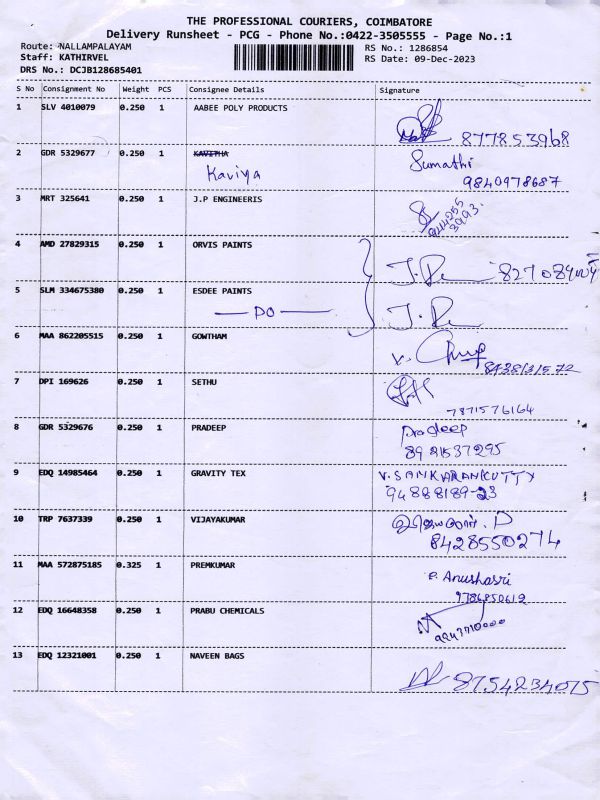 THE PROFESSIONAL COURIERS, COIMBATORE
Delivery Runsheet - PCG - Phone No.:0422-3505555 - Page No.:1
Route: NALLAMPALAYAM RS No.: 1286854
Staff: KATHIRVEL RS Date: 09-Dec-2023
DRS No.: DCJB128685401
S No Consignment No Weight PCS Consignee Details Signature
1 SLV 4010079 0.250 1 AABEE POLY PRODUCTS
877853968
2 GDR 5329677 0.250 1 KAVITHA Sumathi
Kaviya 9840978687
3 MRT 325641 0.250 1 J.P ENGINEERIS
944255
3993.
4 AMD 27829315 0.250 1 ORVIS PAINTS
5 SLM 334675380 0.250 1 ESDEE PAINTS
DO
6 MAA 862205515 0.250 1 GOWTHAM
7 DPI 169626 0.250 1 SETHU
7871576164
8 GDR 5329676 0.250 1 PRADEEP Pradeep
8921537295
9 EDQ 14985464 0.250 1 GRAVITY TEX V. SANKARANKUTTY
94888189-23
10 TRP 7637339 0.250 1 VIJAYAKUMAR
8428550274
11 MAA 572875185 0.325 1 PREMKUMAR P. Anushasri
9786850612
12 EDQ 16648358 0.250 1 PRABU CHEMICALS
13 EDQ 12321001 0.250 1 NAVEEN BAGS
8754234075